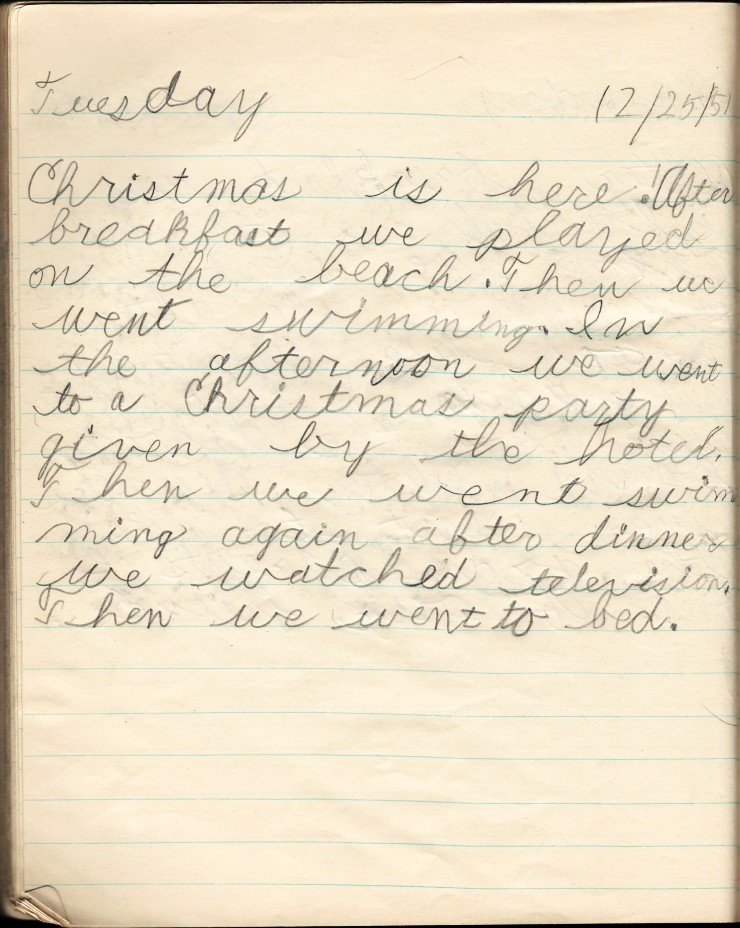 Tuesday 12/25/51
Christmas is here! After
breakfast we played
on the beach. Then we
went swimming. In
the afternoon we went
to a Christmas party
given by the hotel.
Then we went swim
ming again after dinner
we watched television.
Then we went to bed.